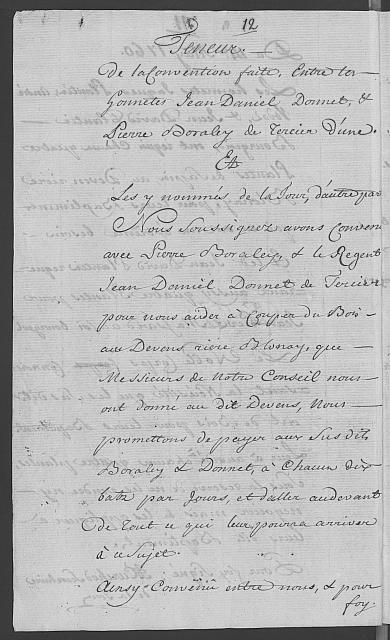 12
Teneur.
De la Convention faite, Entre les
honnêtes Jean Daniel Donnet, &
Pierre Boraley de Tercier d'une.
Et
Les y nommés de la Jour, d'autre part
Nous Soussignez avons Convenu
avec Pierre Boraley, & le Regent
Jean Daniel Donnet de Tercier
pour nous aider à Couper du Bois
aux Devens, riere Blonay, que
Messieurs de Notre Conseil nous
ont donné au dit Devens, Nous
promettons de payer aux Sus dits
Boraley & Donnet, à Chacun dix
batz par Jours, et d'aller audevant
de Tout ce qui leur pourra arriver
à ce Sujet.
Ainsy Convenû entre nous, & pour
foy.